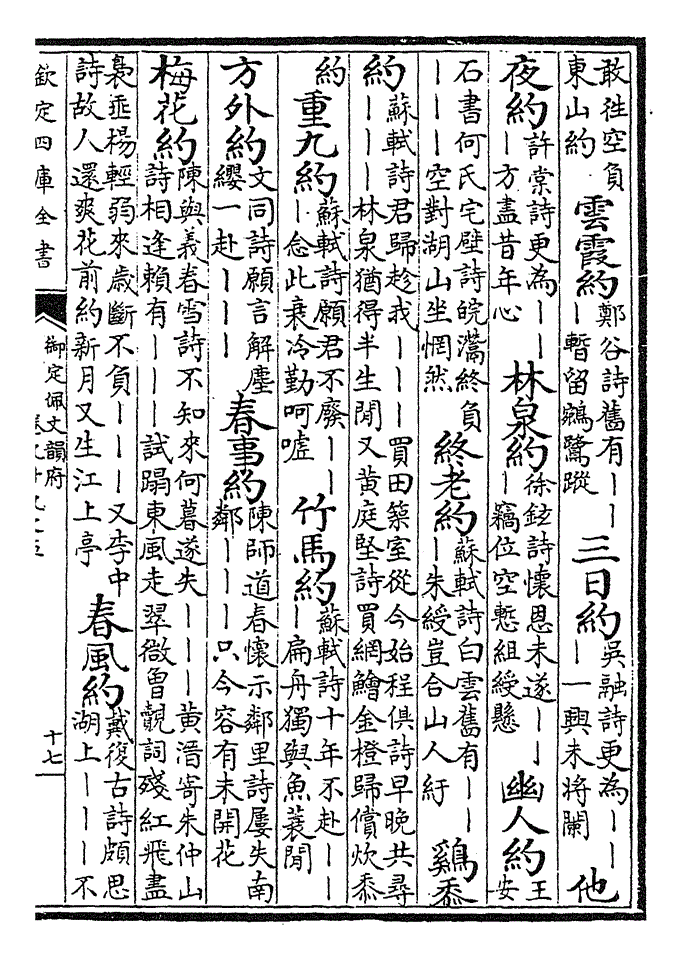 敢徃空負東山約　雲霞約 鄭谷詩舊有｜｜｜暫留鵷鷺蹤　三日約 吳融詩更為｜｜｜一興未將闌　他
夜約 許棠詩更為｜｜｜方盡昔年心　林泉約 徐鉉詩懷恩未遂｜｜｜竊位空慙組綬懸　幽人約 王安
石書何氏宅壁詩皖灊終負｜｜｜空對湖山坐惘然　終老約 蘇軾詩白雲舊有｜｜｜朱綬豈合山人紆　鷄黍
約 蘇軾詩君歸趁我｜｜｜買田築室從今始程俱詩早晚共尋｜｜｜林泉猶得半生閒又黃庭堅詩買網鱠金橙歸償炊黍
約　重九約 蘇軾詩願君不廢｜｜｜念此衰冷勤呵噓　竹馬約 蘇軾詩十年不赴｜｜｜扁舟獨與魚蓑閒
方外約 文同詩願言解塵纓一赴｜｜｜　春事約 陳師道春懷示鄰里詩屢失南鄰｜｜｜只今容有未開花
梅花約 陳與義春雪詩不知來何暮遂失｜｜｜黃溍寄朱仲山詩相逢賴有｜｜｜試蹋東風走翠微曾覿詞殘紅飛盡
裊垂楊輕弱來歲斷不負｜｜｜又李中詩故人還爽花前約新月又生江上亭　春風約 戴復古詩頗思湖上｜｜｜不
欽定四庫全書
御定佩文韻府
卷九十九之五
十七